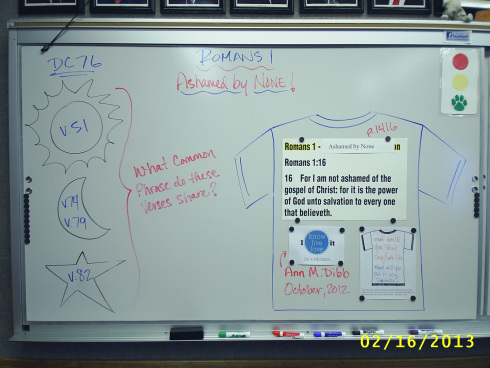 ROMANS 1
DC 76
Ashamed by NONE!
V.51
V.74
V.79
V.82
What Common
Phrase do these
verses share?
R.1416
Romans 1 - Ashamed by None in
Romans 1:16
16 For I am not ashamed of the
gospel of Christ: for it is the power
of God unto salvation to every one
that believeth.
I know
live
love it
Ann M. Dibb
October, 2012
02/16/2013